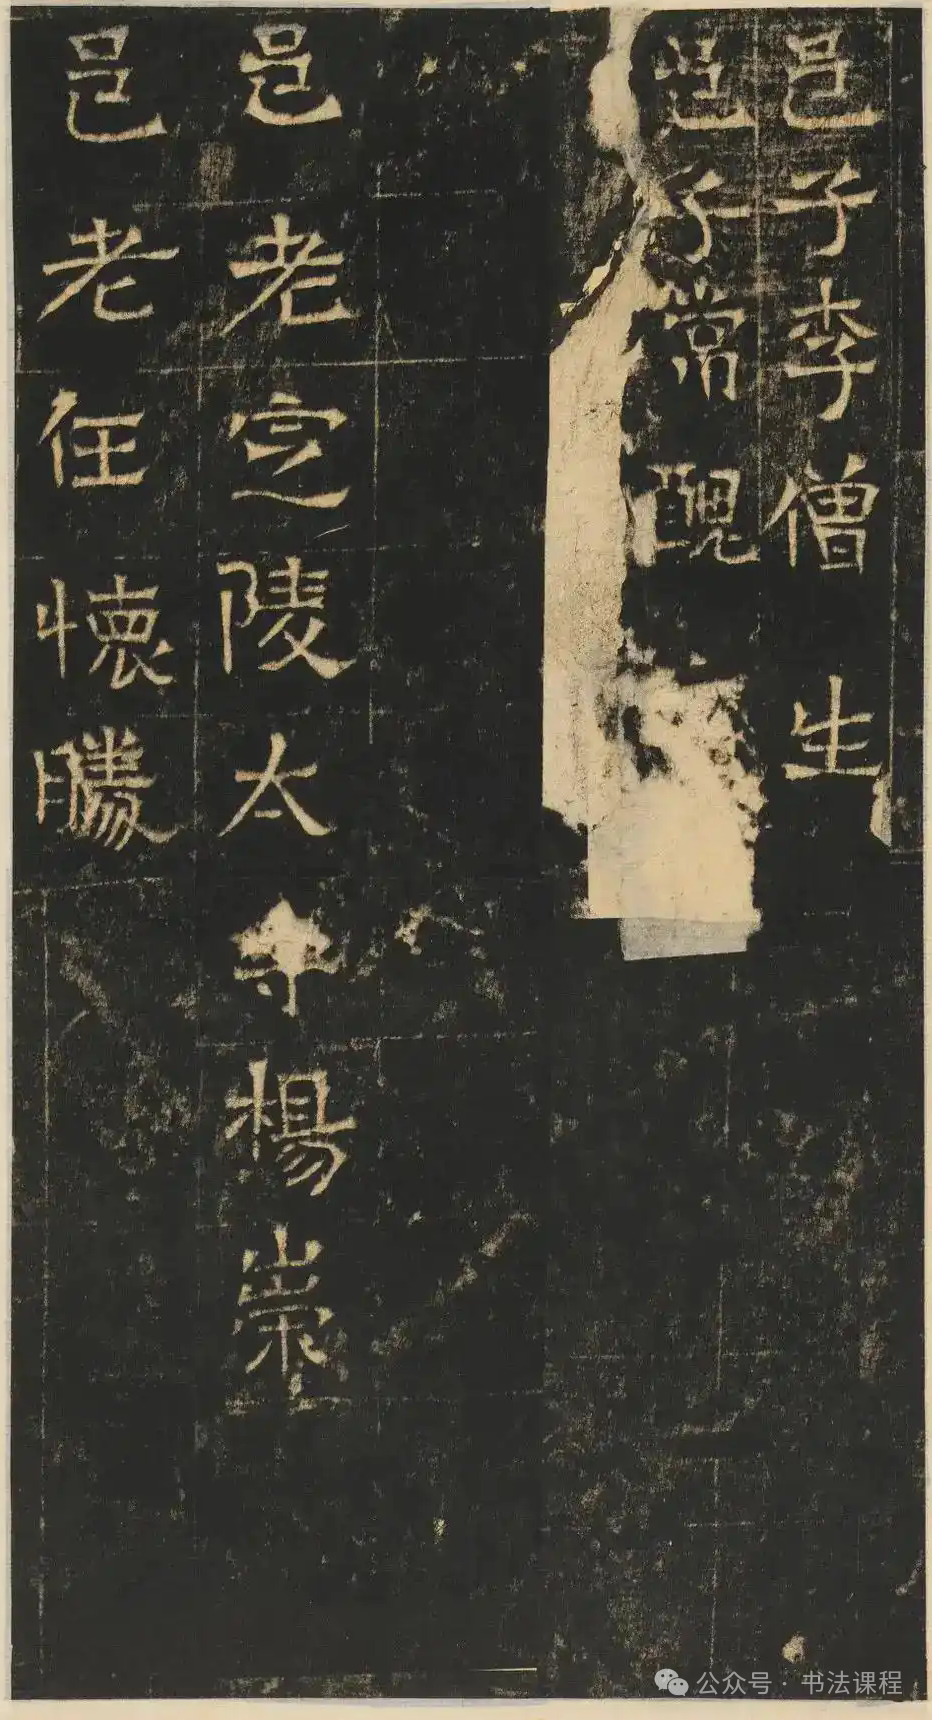 邑子李僧生
邑子常醜
邑老定陵太守楊崇
邑老任懷勝
公众号·书法课程